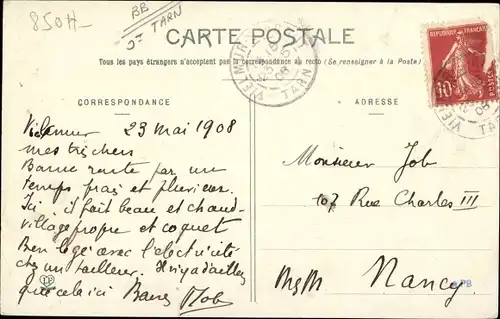 850H
BB
J= TARN
CARTE POSTALE
Tous les pays étrangers n'acceptent pas la correspondance au recto (Se renseigner à la Poste)
REPUBLIQUE FRANÇAISE
10
POSTES
VIELMUR
TARN
CORRESPONDANCE
ADRESSE
Vielmur 23 mai 1908
mes très chers
Bonne route par un
temps frais et pluvieux.
Ici il fait beau et chaud-
village propre et coquet
Bien logé avec l'électricité
chez un tailleur. Il n'y a d'ailleurs
que cela ici Job
Monsieur Job
107 Rue Charles III
Nancy
MgM